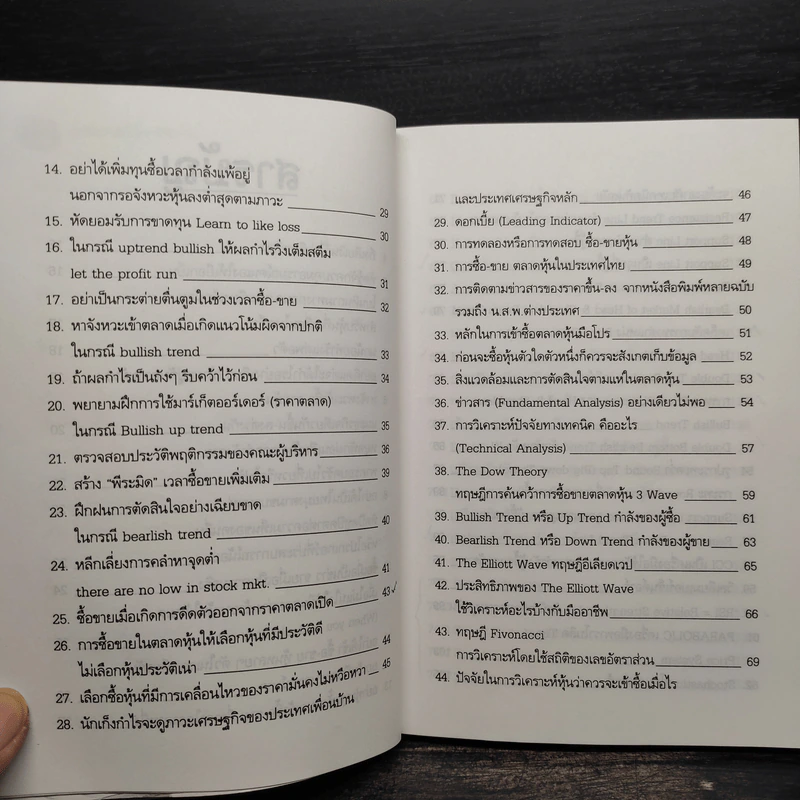 14. อย่าได้เพิ่มทุนซื้อเวลากำลังแพ้อยู่
นอกจากรอจังหวะหุ้นลงต่ำสุดตามภาวะ 29
15. หัดยอมรับการขาดทุน Learn to like loss 30
16. ในกรณี uptrend bullish ให้ผลกำไรวิ่งเต็มสตีม
let the profit run 31
17. อย่าเป็นกระต่ายตื่นตูมในช่วงเวลาซื้อ-ขาย 32
18. หาจังหวะเข้าตลาดเมื่อเกิดแนวโน้มผิดจากปกติ
ในกรณี bullish trend 33
19. ถ้าผลกำไรเป็นถังๆ รีบคว้าไว้ก่อน 34
20. พยายามฝึกการใช้มาร์เก็ตออร์เดอร์ (ราคาตลาด)
ในกรณี Bullish up trend 35
21. ตรวจสอบประวัติพฤติกรรมของคณะผู้บริหาร 36
22. สร้าง “พีระมิด” เวลาซื้อขายเพิ่มเติม 39
23. ฝึกฝนการตัดสินใจอย่างเฉียบขาด
ในกรณี bearlish trend 40
24. หลีกเลี่ยงการคลำหาจุดต่ำ
there are no low in stock mkt. 41
25. ซื้อขายเมื่อเกิดการดีดตัวออกจากราคาตลาดเปิด 43
26. การซื้อขายในตลาดหุ้นให้เลือกหุ้นที่มีประวัติดี
ไม่เลือกหุ้นประวัติเน่า 44
27. เลือกซื้อหุ้นที่มีการเคลื่อนไหวของราคามั่นคงไม่หวือหวา 45
28. นักเก็งกำไรจะดูภาวะเศรษฐกิจของประเทศเพื่อนบ้าน
และประเทศเศรษฐกิจหลัก 46
29. ดอกเบี้ย (Leading Indicator) 47
30. การทดลองหรือการทดสอบ ซื้อ-ขายหุ้น 48
31. การซื้อ-ขาย ตลาดหุ้นในประเทศไทย 49
32. การติดตามข่าวสารของราคาขึ้น-ลง จากหนังสือพิมพ์หลายฉบับ
รวมถึง น.ส.พ.ต่างประเทศ 50
33. หลักในการเข้าซื้อตลาดหุ้นมือโปร 51
34. ก่อนจะซื้อหุ้นตัวใดตัวหนึ่งก็ควรจะสังเกตเก็บข้อมูล 52
35. สิ่งแวดล้อมและการตัดสินใจตามแห่ในตลาดหุ้น 53
36. ข่าวสาร (Fundamental Analysis) อย่างเดียวไม่พอ 54
37. การวิเคราะห์ปัจจัยทางเทคนิค คืออะไร
(Technical Analysis) 57
38. The Dow Theory
ทฤษฎีการค้นคว้าการซื้อขายตลาดหุ้น 3 Wave 59
39. Bullish Trend หรือ Up Trend กำลังของผู้ซื้อ 61
40. Bearlish Trend หรือ Down Trend กำลังของผู้ขาย 63
41. The Elliott Wave ทฤษฎีอีเลียตเวป 65
42. ประสิทธิภาพของ The Elliott Wave
ใช้วิเคราะห์อะไรบ้างกับมืออาชีพ 66
43. ทฤษฎี Fivonacci
การวิเคราะห์โดยใช้สถิติของเลขอัตราส่วน 69
44. ปัจจัยในการวิเคราะห์หุ้นว่าควรจะเข้าซื้อเมื่อไร